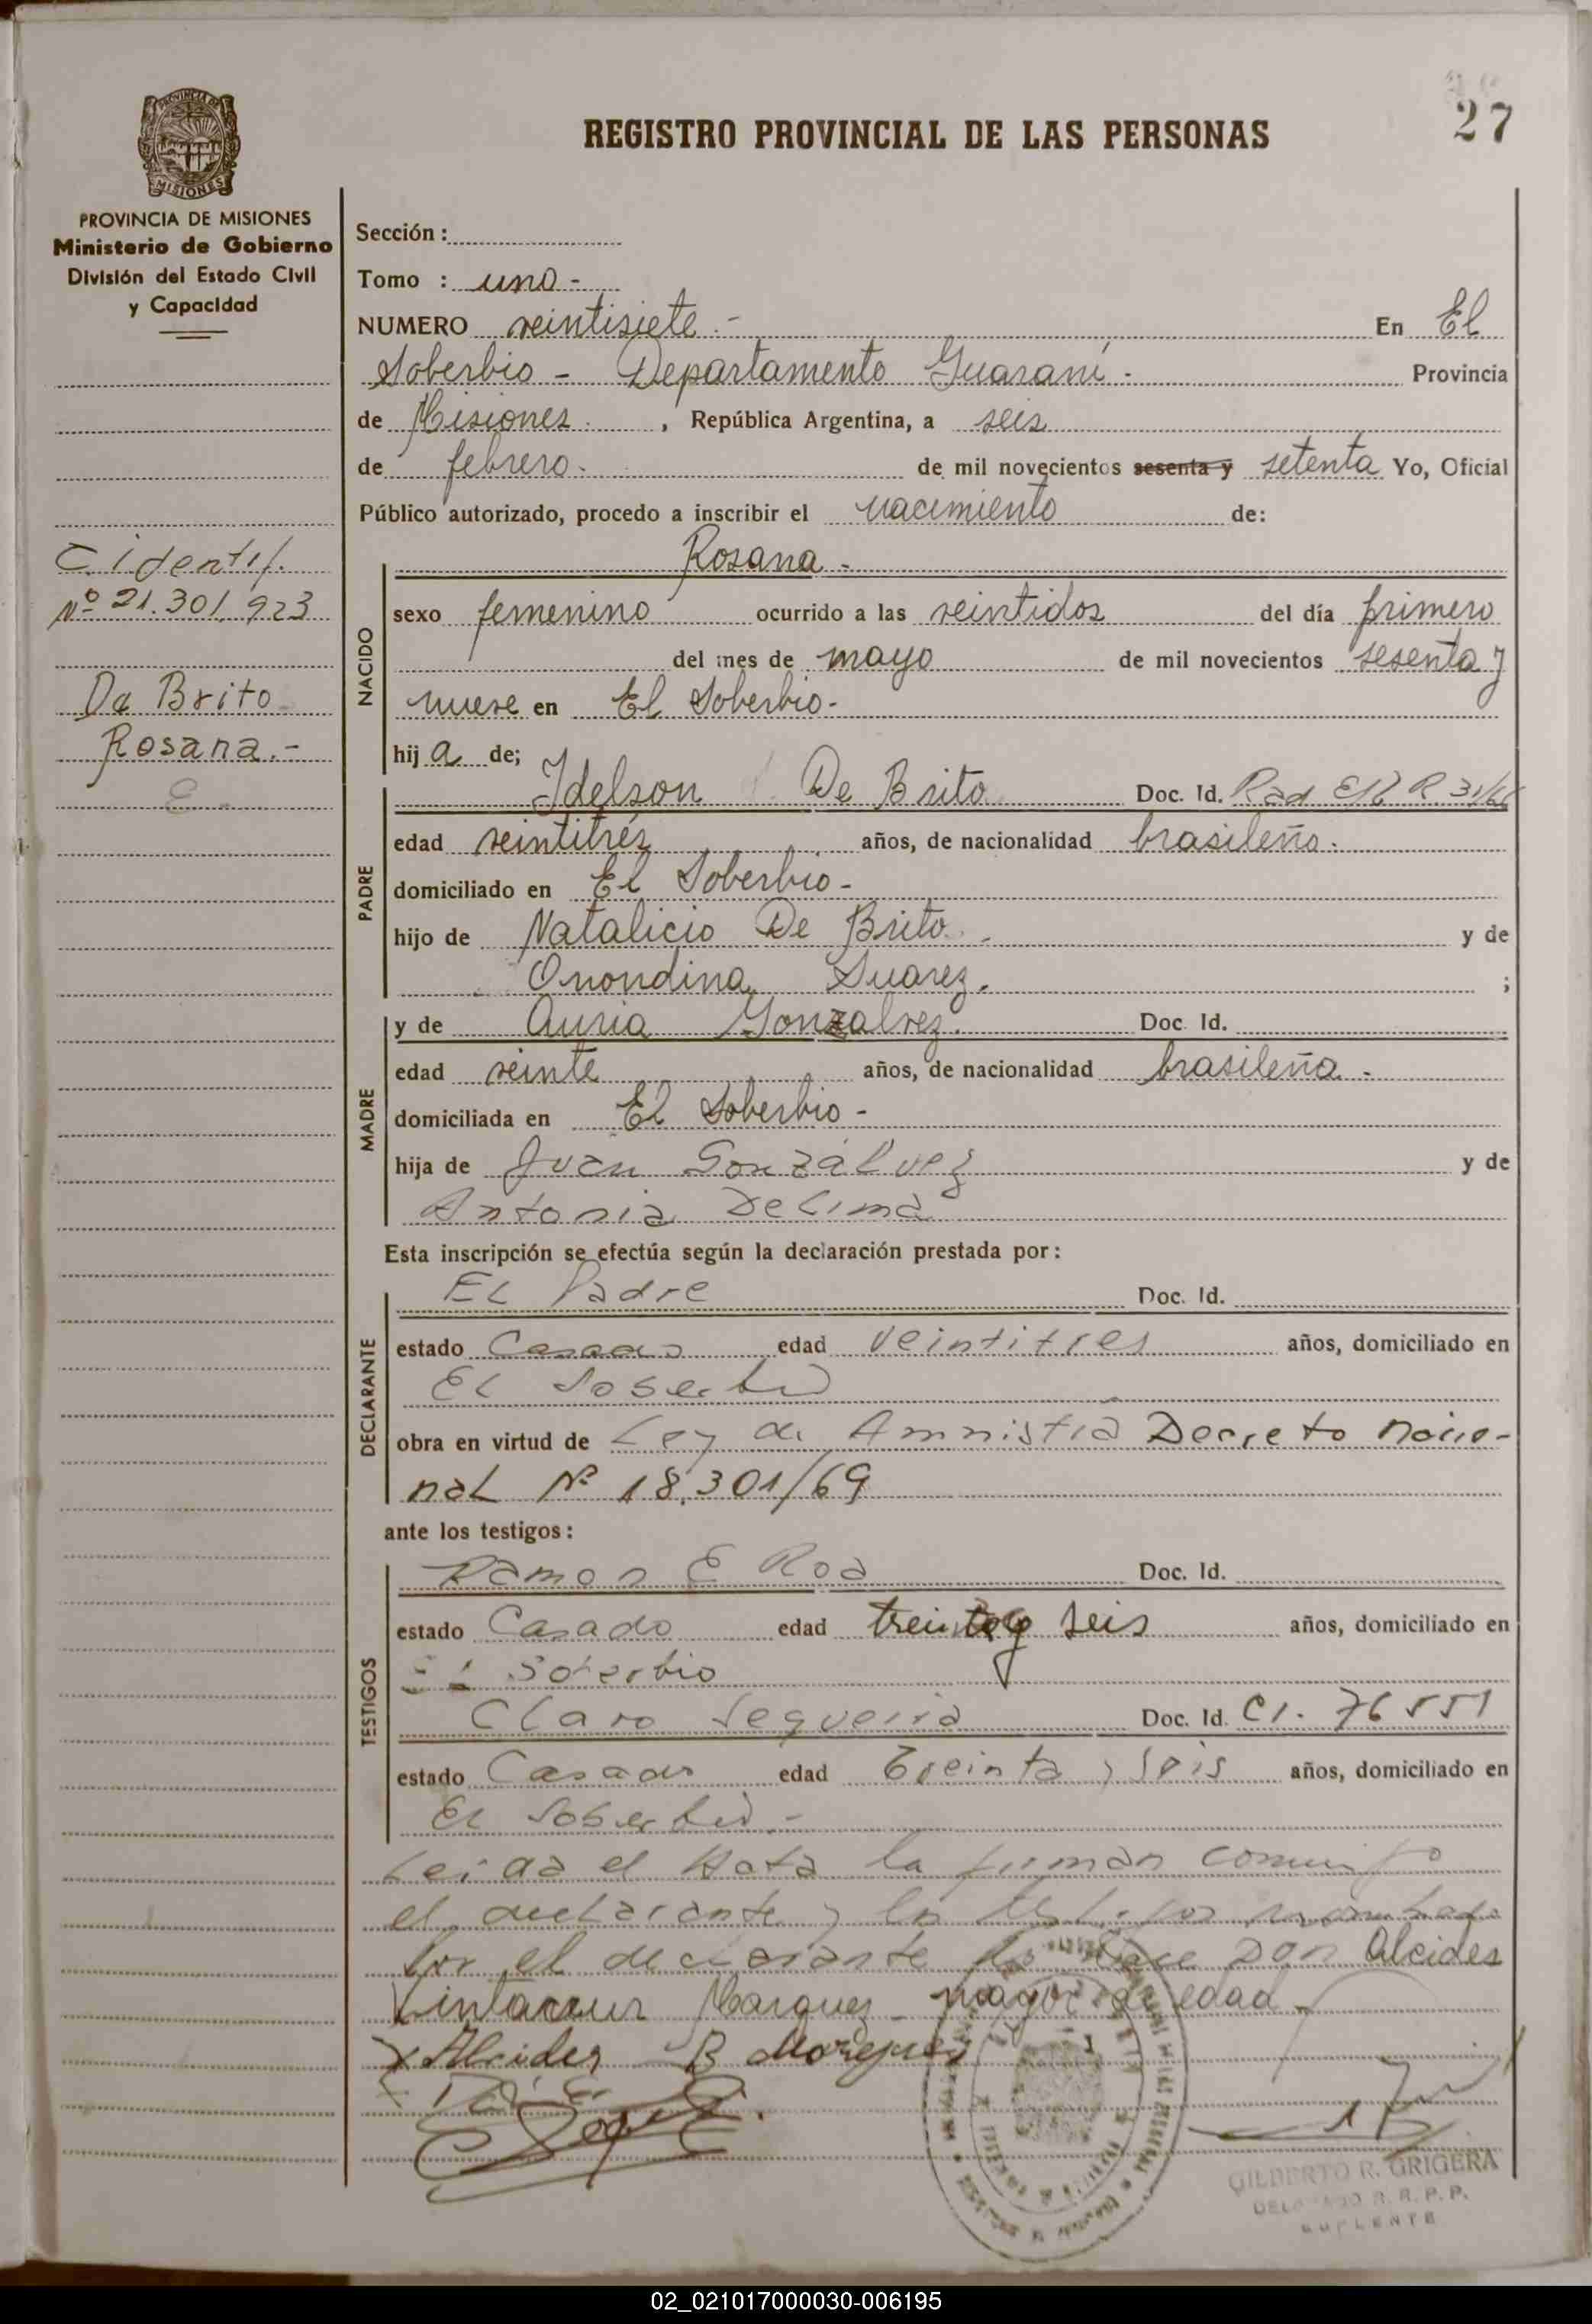 27
REGISTRO PROVINCIAL DE LAS PERSONAS
PROVINCIA DE
MISIONES
PROVINCIA DE MISIONES
Ministerio de Gobierno
División del Estado Civil
y Capacidad
C. identif.
Nº 21.301.923
Da Brito
Rosana.-
Sección :
Tomo : uno -
NUMERO veintisiete.- En El
Soberbio - Departamento Guaraní - Provincia
de Misiones , República Argentina, a seis
de febrero. de mil novecientos sesenta y setenta Yo, Oficial
Público autorizado, procedo a inscribir el nacimiento de:
Rosana -
NACIDO
sexo femenino ocurrido a las veintidos del día primero
del mes de mayo de mil novecientos sesenta y
nueve en El Soberbio-
hij a de;
Idelson De Brito Doc. Id. Rad
PADRE
edad veintitrés años, de nacionalidad brasileño.
domiciliado en El Soberbio-
hijo de Natalicio De Brito y de
Onondina Suarez. ;
MADRE
y de Auria Gonzalvez. Doc. Id.
edad veinte años, de nacionalidad brasileña -
domiciliada en El Soberbio -
hija de Juan Gonzálvez y de
Antonia De Lima
Esta inscripción se efectúa según la declaración prestada por :
DECLARANTE
El Padre Doc. Id.
estado Casado edad veintitres años, domiciliado en
El Soberbio
obra en virtud de Ley de Amnistia Decreto nacio-
nal Nº 18.301/69
ante los testigos :
TESTIGOS
Ramon E Roa Doc. Id.
estado Casado edad treinta y seis años, domiciliado en
El Soberbio
Claro Sequeira Doc. Id. CI. 76551
estado Casado edad Treinta y Seis años, domiciliado en
El Soberbio -
Leida el Acta la firman conmigo
el declarante y los testigos
por el declarante lo hace Don Alcides
Marquez mayor de edad -
Alcides B
GILBERTO R. GRIGERA
DELEGADO R. R. P. P.
SUPLENTE
02_021017000030-006195